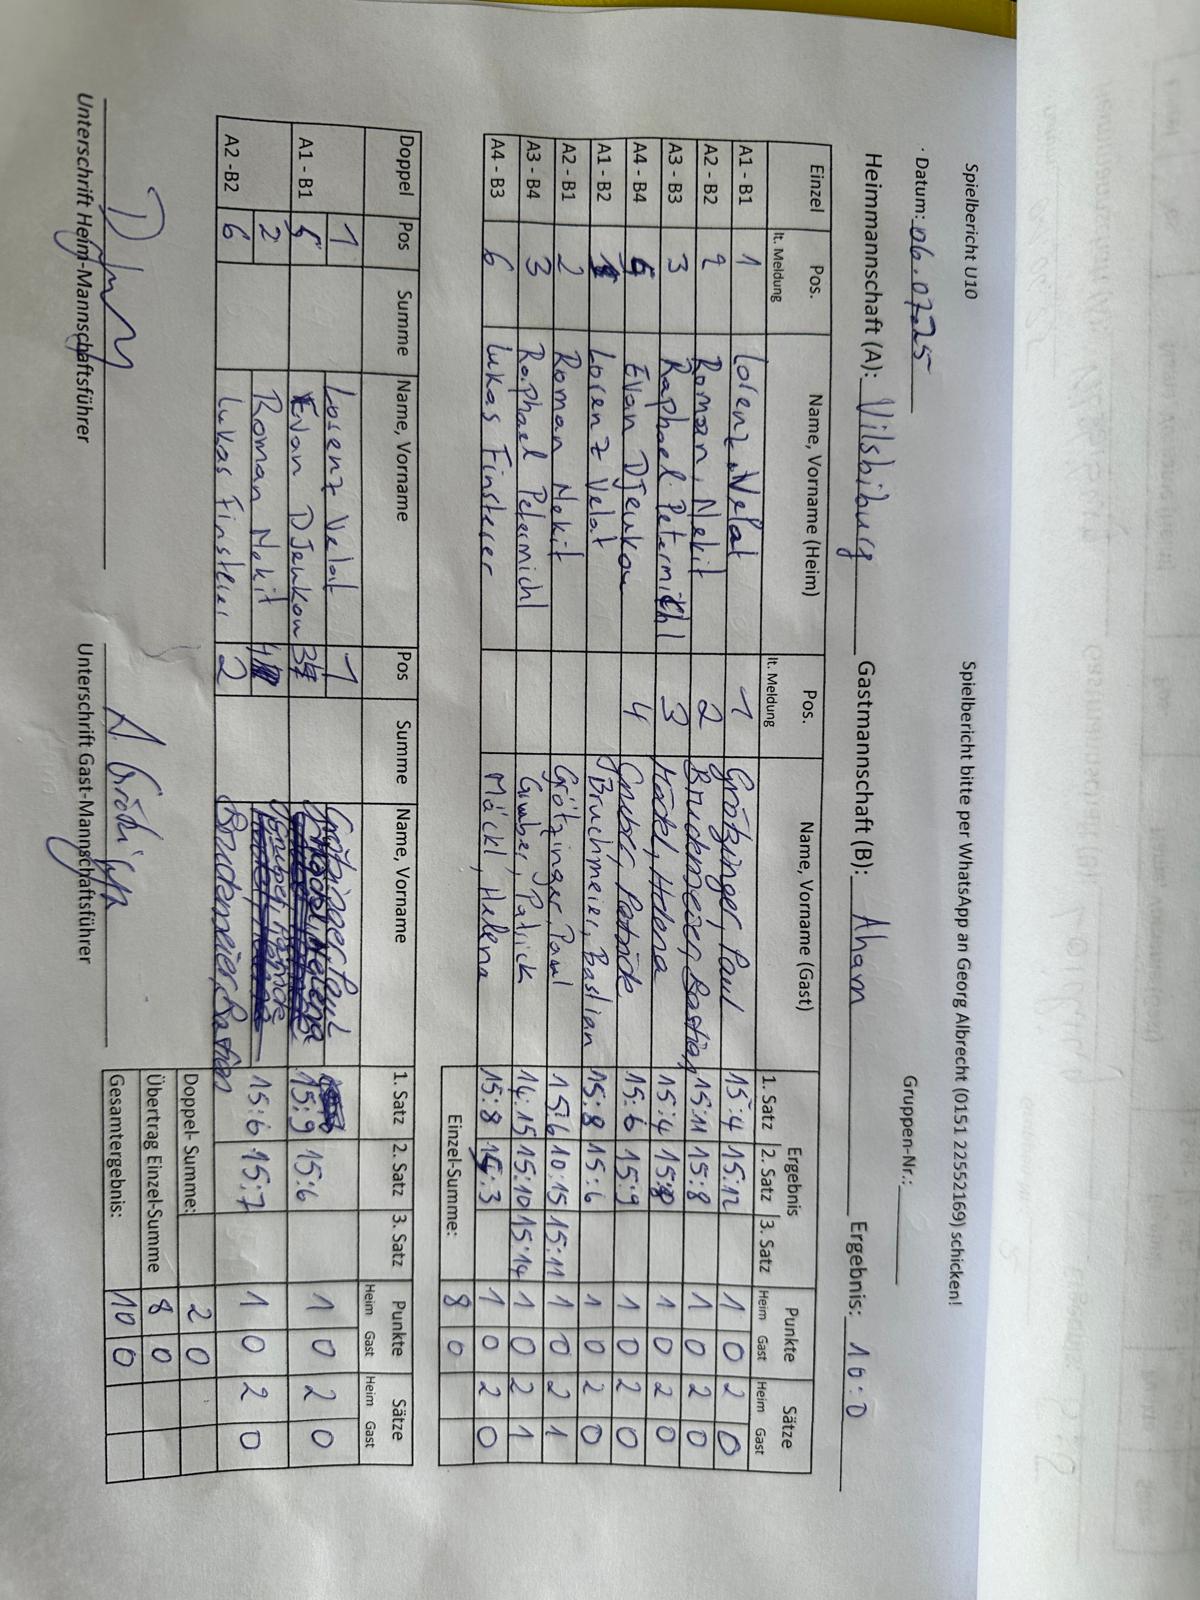 Spielbericht U10 Spielbericht bitte per WhatsApp an Georg Albrecht (0151 22552169) schicken!
Datum: 06.07.25 Gruppen-Nr.:
Heimmannschaft (A): Vilsbiburg Gastmannschaft (B): Aham Ergebnis: 10:0
Einzel Pos. Name, Vorname (Heim) Pos. Name, Vorname (Gast) Ergebnis Punkte Sätze
lt. Meldung lt. Meldung 1. Satz 2. Satz 3. Satz Heim Gast Heim Gast
A1 - B1 1 Lorenz Velat 1 Grötzinger, Paul 15:4 15:12 1 0 2 0
A2 - B2 2 Roman, Nekit 2 Bruckmeier, Bastian 15:11 15:8 1 0 2 0
A3 - B3 3 Raphael Petermichl 3 Möckl, Helena 15:4 15:8 1 0 2 0
A4 - B4 6 Evan Djenkow 4 Gruber, Patrick 15:6 15:9 1 0 2 0
A1 - B2 1 Lorenz Velat Bruchmeier, Bastian 15:8 15:6 1 0 2 0
A2 - B1 2 Roman Nekit Grötzinger, Paul 15:6 10:15 15:11 1 0 2 1
A3 - B4 3 Raphael Petermichl Gruber, Patrick 14:15 15:10 15:14 1 0 2 1
A4 - B3 6 Lukas Finsterer Möckl, Helena 15:8 15:3 1 0 2 0
Einzel-Summe: 8 0
Doppel Pos Summe Name, Vorname Pos Summe Name, Vorname 1. Satz 2. Satz 3. Satz Punkte Sätze
Heim Gast Heim Gast
1 Lorenz Velat 1 Grötzinger, Paul
A1 - B1 Evan Djenkow 3 Möckl, Helena 15:9 15:6 1 0 2 0
2 Roman Nekit 4 Gruber, Patrick
A2 - B2 6 Lukas Finsterer 2 Bruckmeier, Bastian 15:6 15:7 1 0 2 0
Doppel- Summe: 2 0
Übertrag Einzel-Summe 8 0
Gesamtergebnis: 10 0
Unterschrift Heim-Mannschaftsführer Unterschrift Gast-Mannschaftsführer